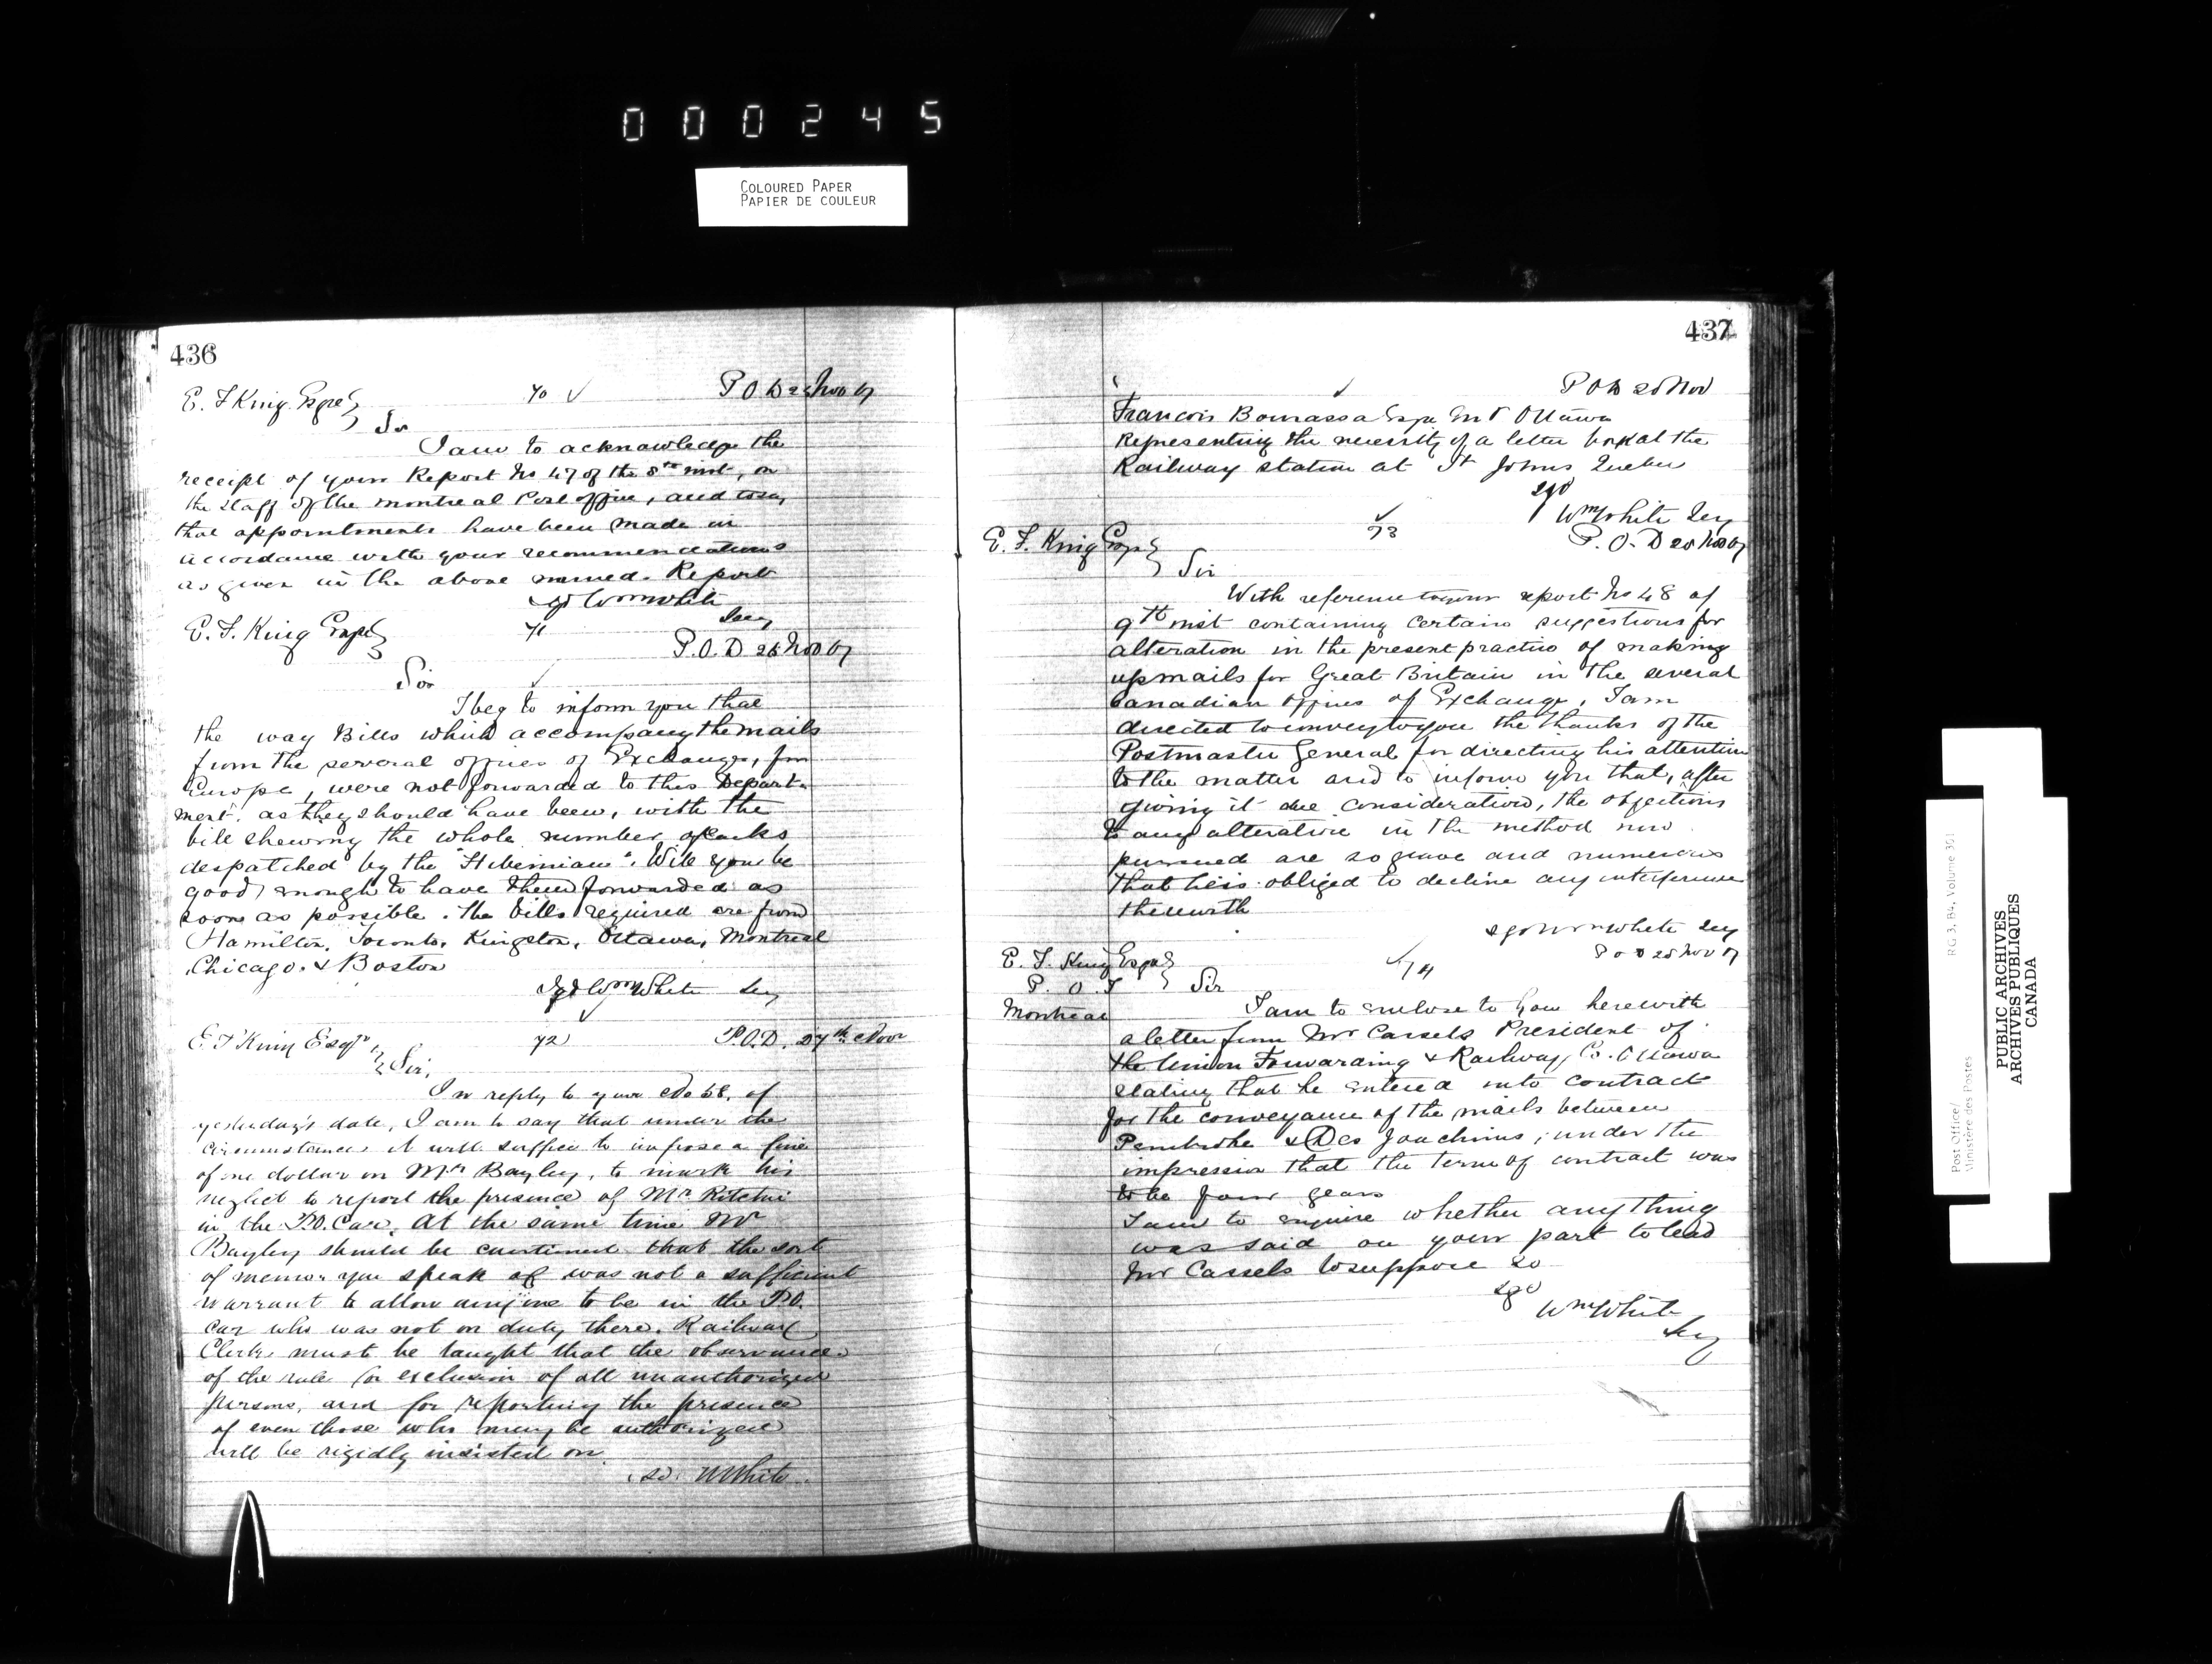 000245
COLOURED PAPER
PAPIER DE COULEUR
436
E. F King Esqre
70 ✓
P O D 26 Nov 67
Sir
I am to acknowledge the
receipt of your Report No 47 of the 8th inst, on
the staff of the Montreal Post office, and to say
that appointments have been made in
accordance with your recommendations
as given in the above named. Report
sgd Wm White
Secy
E. F. King Esqre
71
P.O.D 26 Nov 67
Sir ✓
I beg to inform you that
the way Bills which accompany the mails
from the several offices of Exchange, for
Europe, were not forwarded to this Depart-
ment. as they should have been, with the
bill shewing the whole number of sacks
despatched by the "Hibernian". Will you be
good enough to have them forwarded as
soon as possible. The bills required are from
Hamilton, Toronto, Kingston, Ottawa, Montreal
Chicago. & Boston
Sgd Wm White Secy
✓
E F King Esqre
72
P.O.D. 27th Nov
Sir,
In reply to your No 58, of
yesterday's date, I am to say that under the
circumstances it will suffice to impose a fine
of one dollar on Mr Bayley, to mark his
neglect to report the presence of Mr Ritchie
in the P.O. Car. At the same time Mr
Bayley should be cautioned that the sort
of memo. you speak of was not a sufficient
warrant to allow anyone to be in the P.O.
Car who was not on duty there. Railway
Clerks must be taught that the observance
of the rule for exclusion of all unauthorized
persons, and for reporting the presence
of even those who may be authorized
will be rigidly insisted on.
(sd) WWhite
437
✓
P O D 28 Nov
Francois Bourassa Esqre M P Ottawa
Representing the necessity of a letter box at the
Railway station at St Johns Quebec
sgd
Wm White Secy
E. F. King Esqre
✓
73
P. O. D 28 Nov 67
Sir
With reference to your report No 48 of
9th inst containing certain suggestions for
alteration in the present practice of making
up mails for Great Britain in the several
Canadian offices of Exchange, I am
directed to convey to you the thanks of the
Postmaster General for directing his attention
to the matter and to inform you that, after
giving it due consideration, the objections
to any alteration in the method now
pursued are so grave and numerous
that he is obliged to decline any interference
therewith
sgd Wm White Secy
P O D 28 Nov 67
E. F. King Esqre
✓ 74
P. O. I
Sir
Montreal
I am to enclose to you herewith
a letter from Mr Cassels President of
the Union Forwarding & Railway Co. Ottawa
stating that he entered into contract
for the conveyance of the mails between
Pembroke & Des Joachims, under the
impression that the term of contract was
to be four years
I am to enquire whether anything
was said on your part to lead
Mr Cassels to suppose so
sgd
Wm White
Secy
Post Office/
Ministère des Postes
RG 3, B4, Volume 301
PUBLIC ARCHIVES
ARCHIVES PUBLIQUES
CANADA